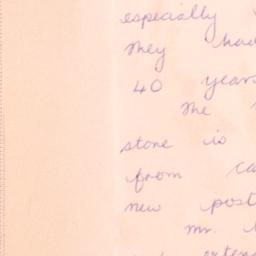 especially
they had
40 years
The
stone is
from ca
new post
Mr.
exten